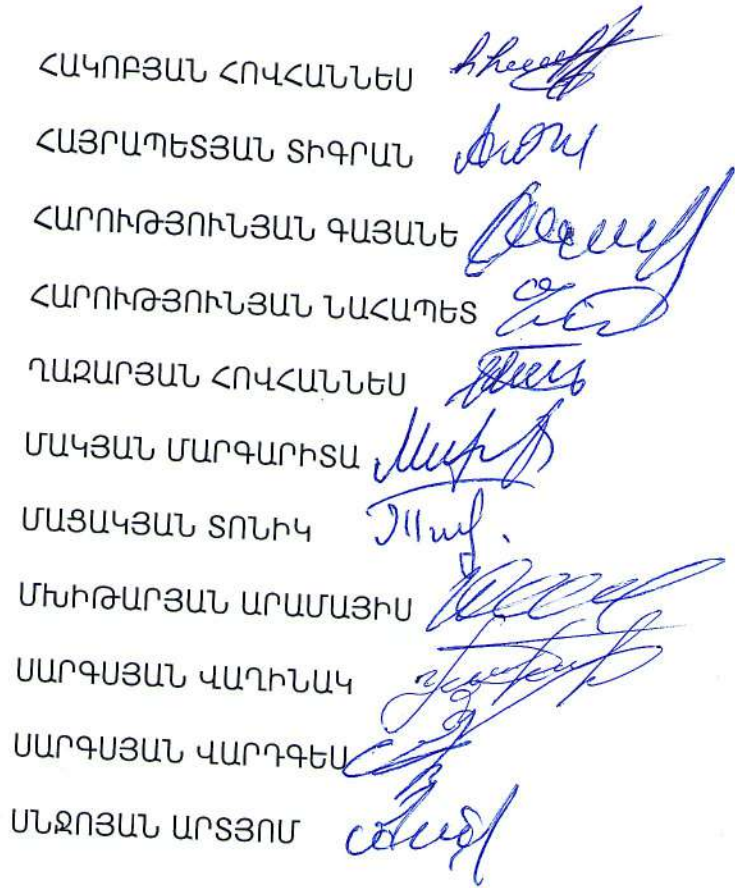 ՀԱԿՈԲՅԱՆ ՀՈՎՀԱՆՆԵՍ
ՀԱՅՐԱՊԵՏՅԱՆ ՏԻԳՐԱՆ
ՀԱՐՈՒԹՅՈՒՆՅԱՆ ԳԱՅԱՆԵ
ՀԱՐՈՒԹՅՈՒՆՅԱՆ ՆԱՀԱՊԵՏ
ՂԱԶԱՐՅԱՆ ՀՈՎՀԱՆՆԵՍ
ՄԱԿՅԱՆ ՄԱՐԳԱՐԻՏԱ
ՄԱՑԱԿՅԱՆ ՏՈՆԻԿ
ՄԽԻԹԱՐՅԱՆ ԱՐԱՄԱՅԻՍ
ՍԱՐԳՍՅԱՆ ՎԱՂԻՆԱԿ
ՍԱՐԳՍՅԱՆ ՎԱՐԴԳԵՍ
ՍՆՋՈՅԱՆ ԱՐՏՅՈՄ